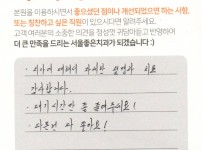 본원을 이용하시면서 좋으셨던 점이나 개선되었으면 하는 사항,
또는 칭찬하고 싶은 직원이 있으시다면 알려주세요.
고객 여러분의 소중한 의견을 정성껏 귀담아듣고 반영하여
더 큰 만족을 드리는 서울좋은치과가 되겠습니다 :)
자세한 설명과 치료
감사합니다.
대기시간만 좀 줄여주세요!
다른건 다 좋아요!